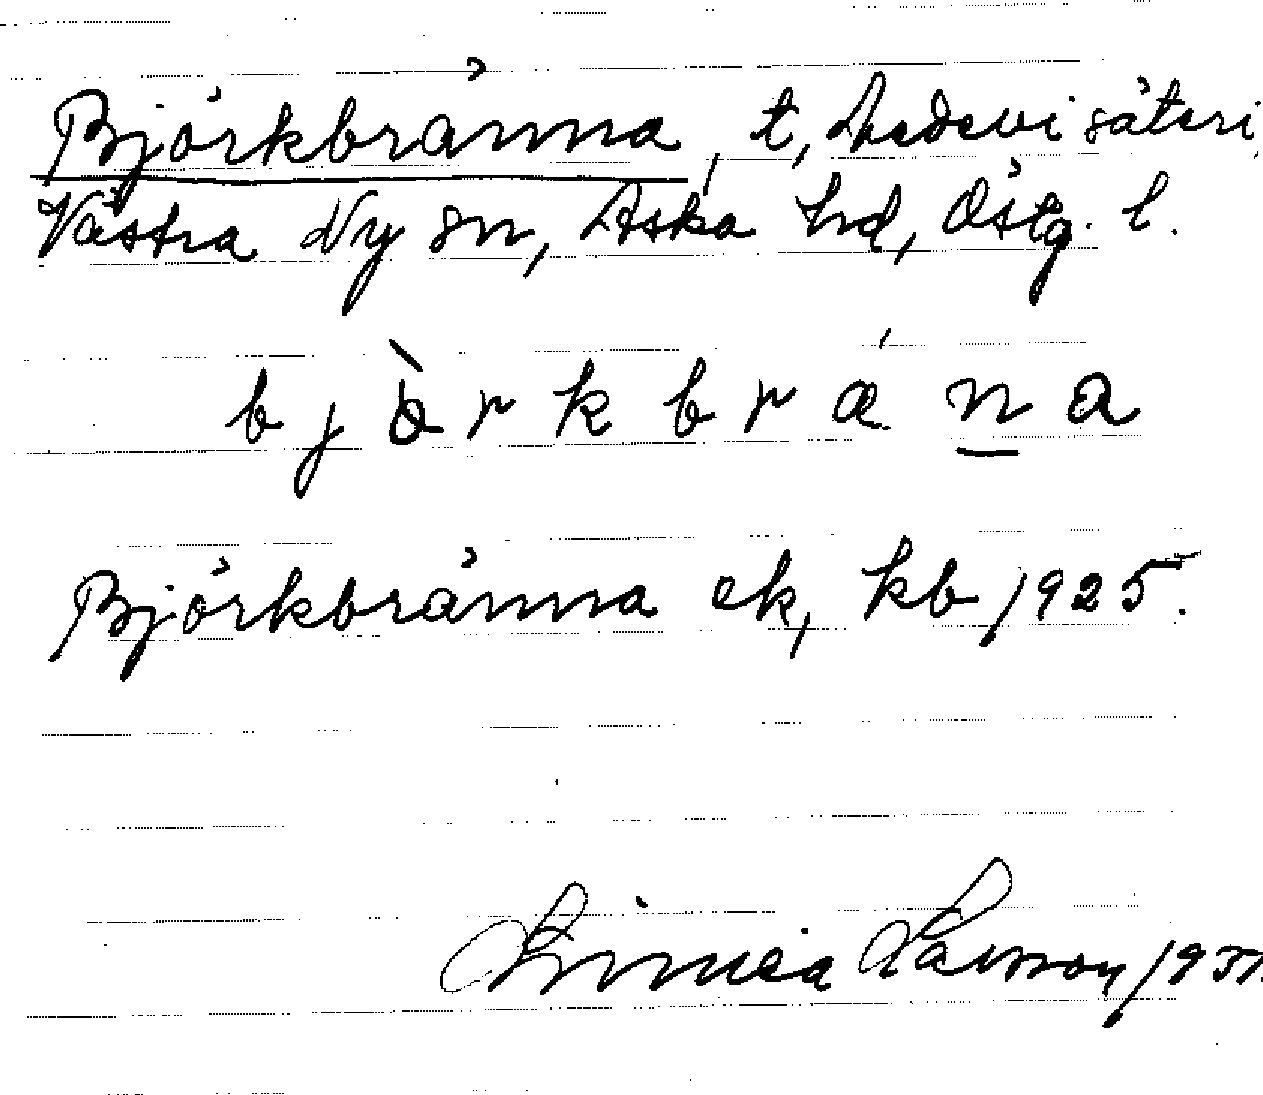 Björkbränna, t, Medevi säteri,
Västra Ny sn, Aska hd, Östg. l.
b j ò r k b r ǽ n a
Björkbränna ek, kb 1925.
Linnea Larsson